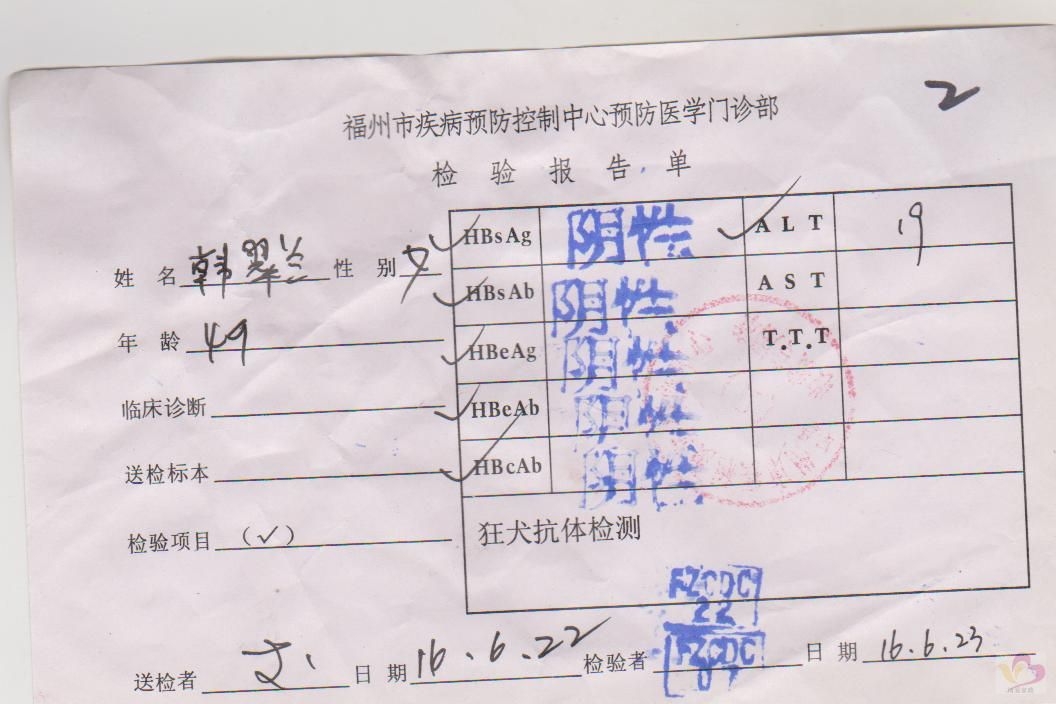 2
福州市疾病预防控制中心预防医学门诊部
检验报告单
姓名 韩翠兰 性别 女
年龄 49
临床诊断
送检标本
检验项目 (✓)
✓ HBsAg 阴性 ✓ ALT 19
✓ HBsAb 阴性 AST
✓ HBeAg 阴性 T.T.T
✓ HBeAb 阴性
✓ HBcAb 阴性
狂犬抗体检测
FZCDC
22
FZCDC
07
送检者 日期 16.6.22 检验者 日期 16.6.23